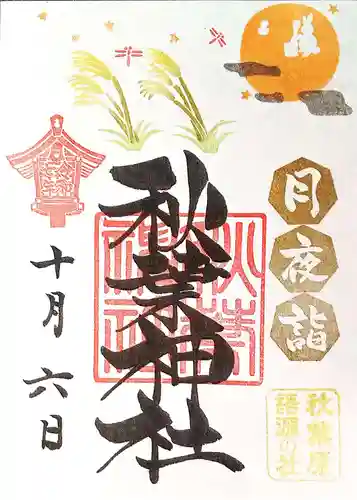 月夜詣
秋葉原
語源の社
秋葉神社
十月六日